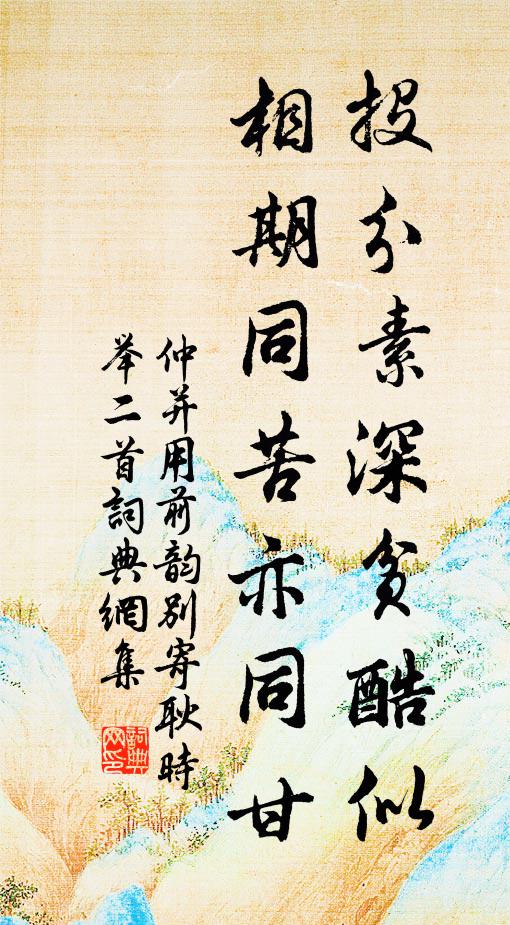 投分素深贫酷似
相期同苦亦同甘
仲并用前韵别寄耿時
举二首詞典網集
詞典
网印